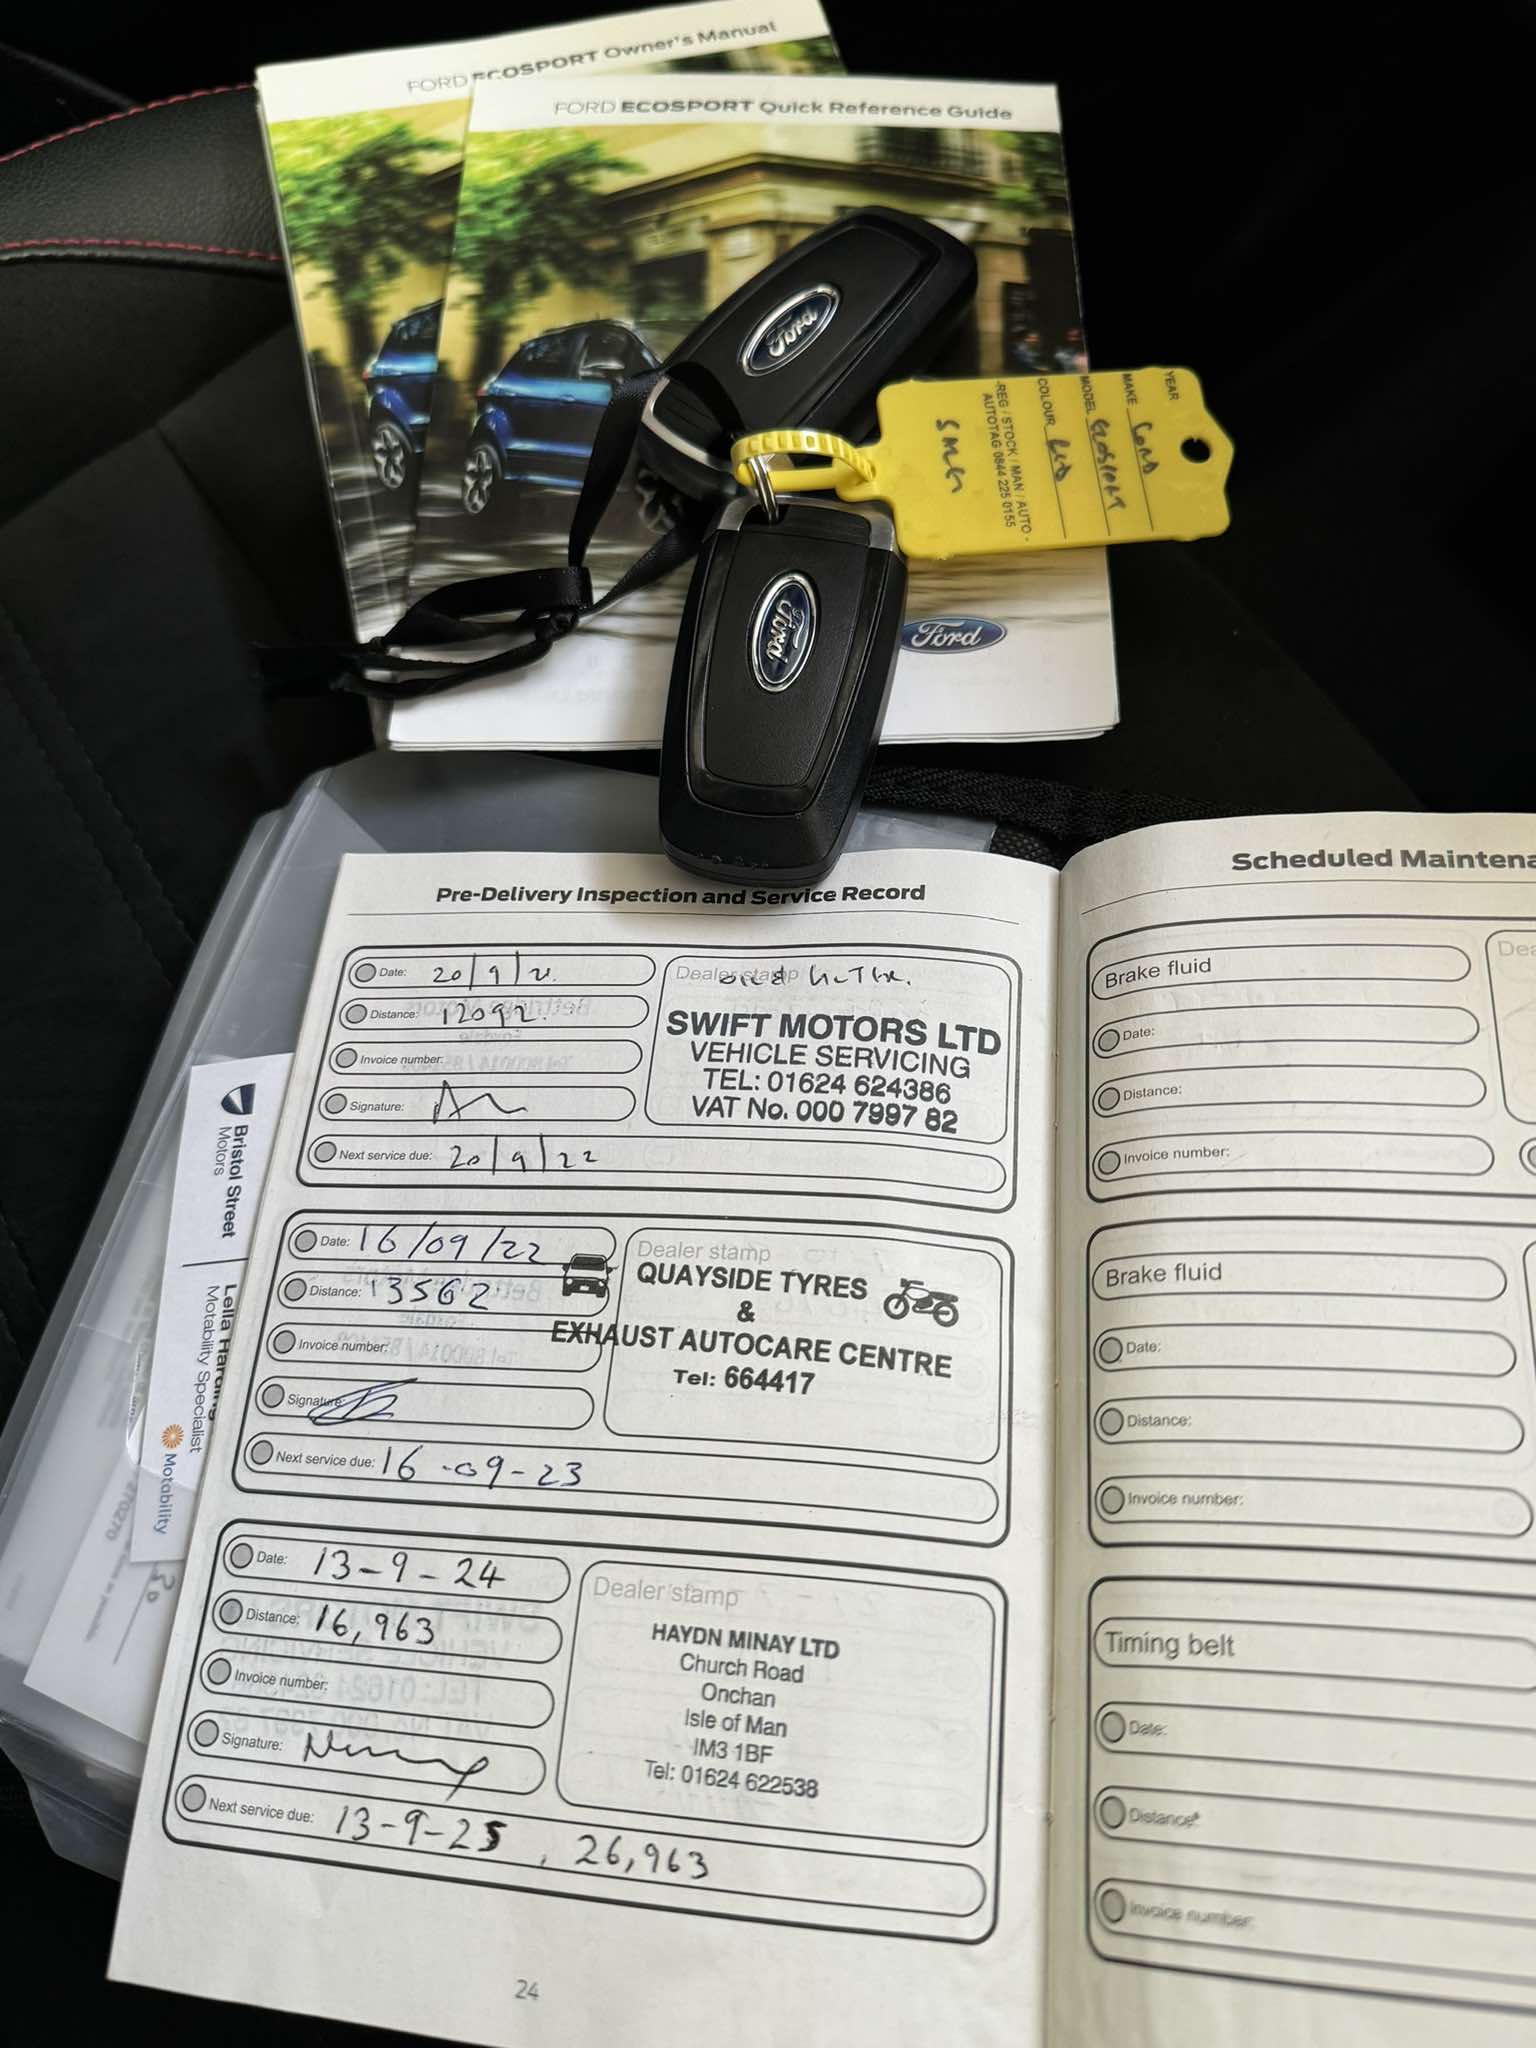 FORD ECOSPORT Owner's Manual
FORD ECOSPORT Quick Reference Guide
Ford
Ford
Ford
YEAR
MAKE FORD
MODEL ECOSPORT
COLOUR RED
-REG / STOCK / MAN / AUTO -
AUTOTAG 0844 225 0155
Pre-Delivery Inspection and Service Record
Date: 20/9/21.
Distance: 12092.
Invoice number:
Signature:
Next service due: 20/9/22
Dealer stamp
SWIFT MOTORS LTD
VEHICLE SERVICING
TEL: 01624 624386
VAT No. 000 7997 82
Date: 16/09/22
Distance: 13562
Invoice number:
Signature:
Next service due: 16-09-23
Dealer stamp
QUAYSIDE TYRES
&
EXHAUST AUTOCARE CENTRE
Tel: 664417
Date: 13-9-24
Distance: 16,963
Invoice number:
Signature:
Next service due: 13-9-25, 26,963
Dealer stamp
HAYDN MINAY LTD
Church Road
Onchan
Isle of Man
IM3 1BF
Tel: 01624 622538
24
Bristol Street
Motors
Motability Specialist
Motability
Scheduled
Brake fluid
Date:
Distance:
Invoice number:
Brake fluid
Date:
Distance:
Invoice number:
Timing belt
Date:
Distance:
Invoice number: